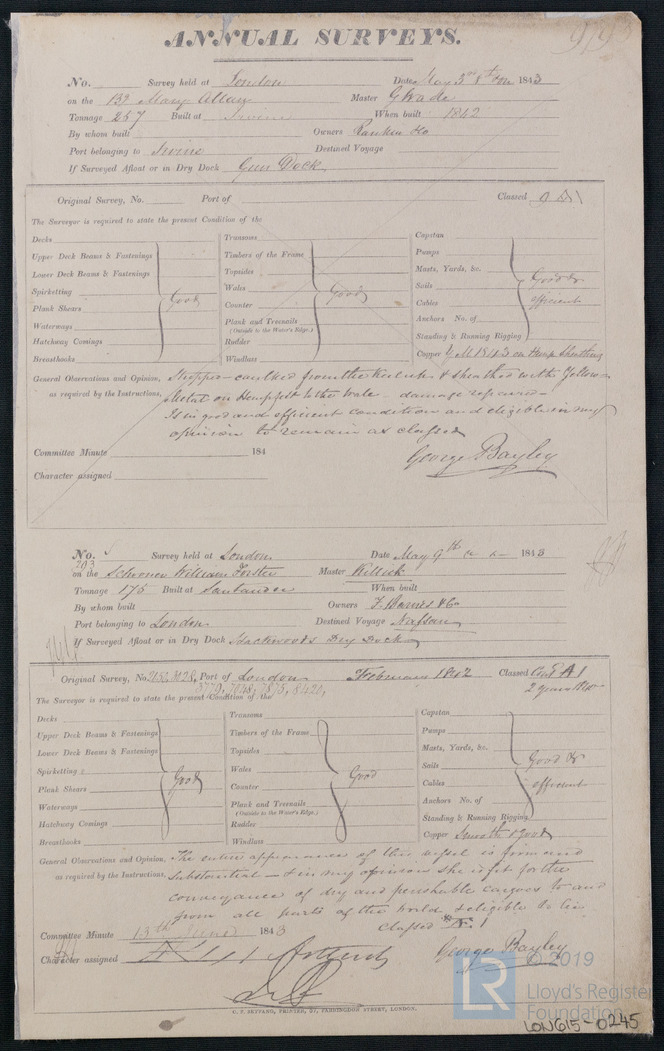 ANNUAL SURVEYS.
No. Survey held at London Date May 3rd & 8th 1843
on the Bg Mary Allan Master G Wade
Tonnage 257 Built at Irvine When built 1842
By whom built Owners Rankin & Co
Port belonging to Irvine Destined Voyage
If Surveyed Afloat or in Dry Dock Gun Dock
Original Survey, No. Port of Classed A 1
The Surveyor is required to state the present Condition of the
Decks
Upper Deck Beams & Fastenings
Lower Deck Beams & Fastenings
Spirketting
Plank Shears
Waterways
Hatchway Comings
Breasthooks
Good
Transoms
Timbers of the Frame
Topsides
Wales
Counter
Plank and Treenails
(Outside to the Water's Edge.)
Rudder
Windlass
Good
Capstan
Pumps
Masts, Yards, &c.
Sails
Cables
Anchors No. of
Standing & Running Rigging
Good &
efficient
Copper Y. M 1843 on Hemp Sheathing
General Observations and Opinion, Stripped caulked from the Keel up & sheathed with Yellow
as required by the Instructions, Metal on Hemp felt to the Wale damage repaired
Is in good and efficient condition and eligible in my
opinion to remain as classed
Committee Minute 184
George Bayley
Character assigned
No. Survey held at London Date May 9th 1843
203
on the Schooner William Forster Master Killick
Tonnage 175 Built at Santander When built
By whom built Owners F. Barnes & Co
Port belonging to London Destined Voyage
If Surveyed Afloat or in Dry Dock Dry Dock
Original Survey, No. Port of London February 1842 Classed A 1
7048, 7875, 8420,
2 years
The Surveyor is required to state the present Condition of the
Decks
Upper Deck Beams & Fastenings
Lower Deck Beams & Fastenings
Spirketting
Plank Shears
Waterways
Hatchway Comings
Breasthooks
Good
Transoms
Timbers of the Frame
Topsides
Wales
Counter
Plank and Treenails
(Outside to the Water's Edge.)
Rudder
Windlass
Good
Capstan
Pumps
Masts, Yards, &c.
Sails
Cables
Anchors No. of
Standing & Running Rigging
Good &
efficient
Copper Smooth & Good
General Observations and Opinion, The entire appearance of this vessel is firm and
as required by the Instructions, substantial & in my opinion she is fit for the
conveyance of dry and perishable cargoes to and
from all parts of the World & eligible to be
classed Æ 1
Committee Minute 13th June 1843
George Bayley
Character assigned Æ 1
C. F. SEYFANG, PRINTER, 57, FARRINGDON STREET, LONDON.
LR © 2019
Lloyd's Register
Foundation
LON615-0245